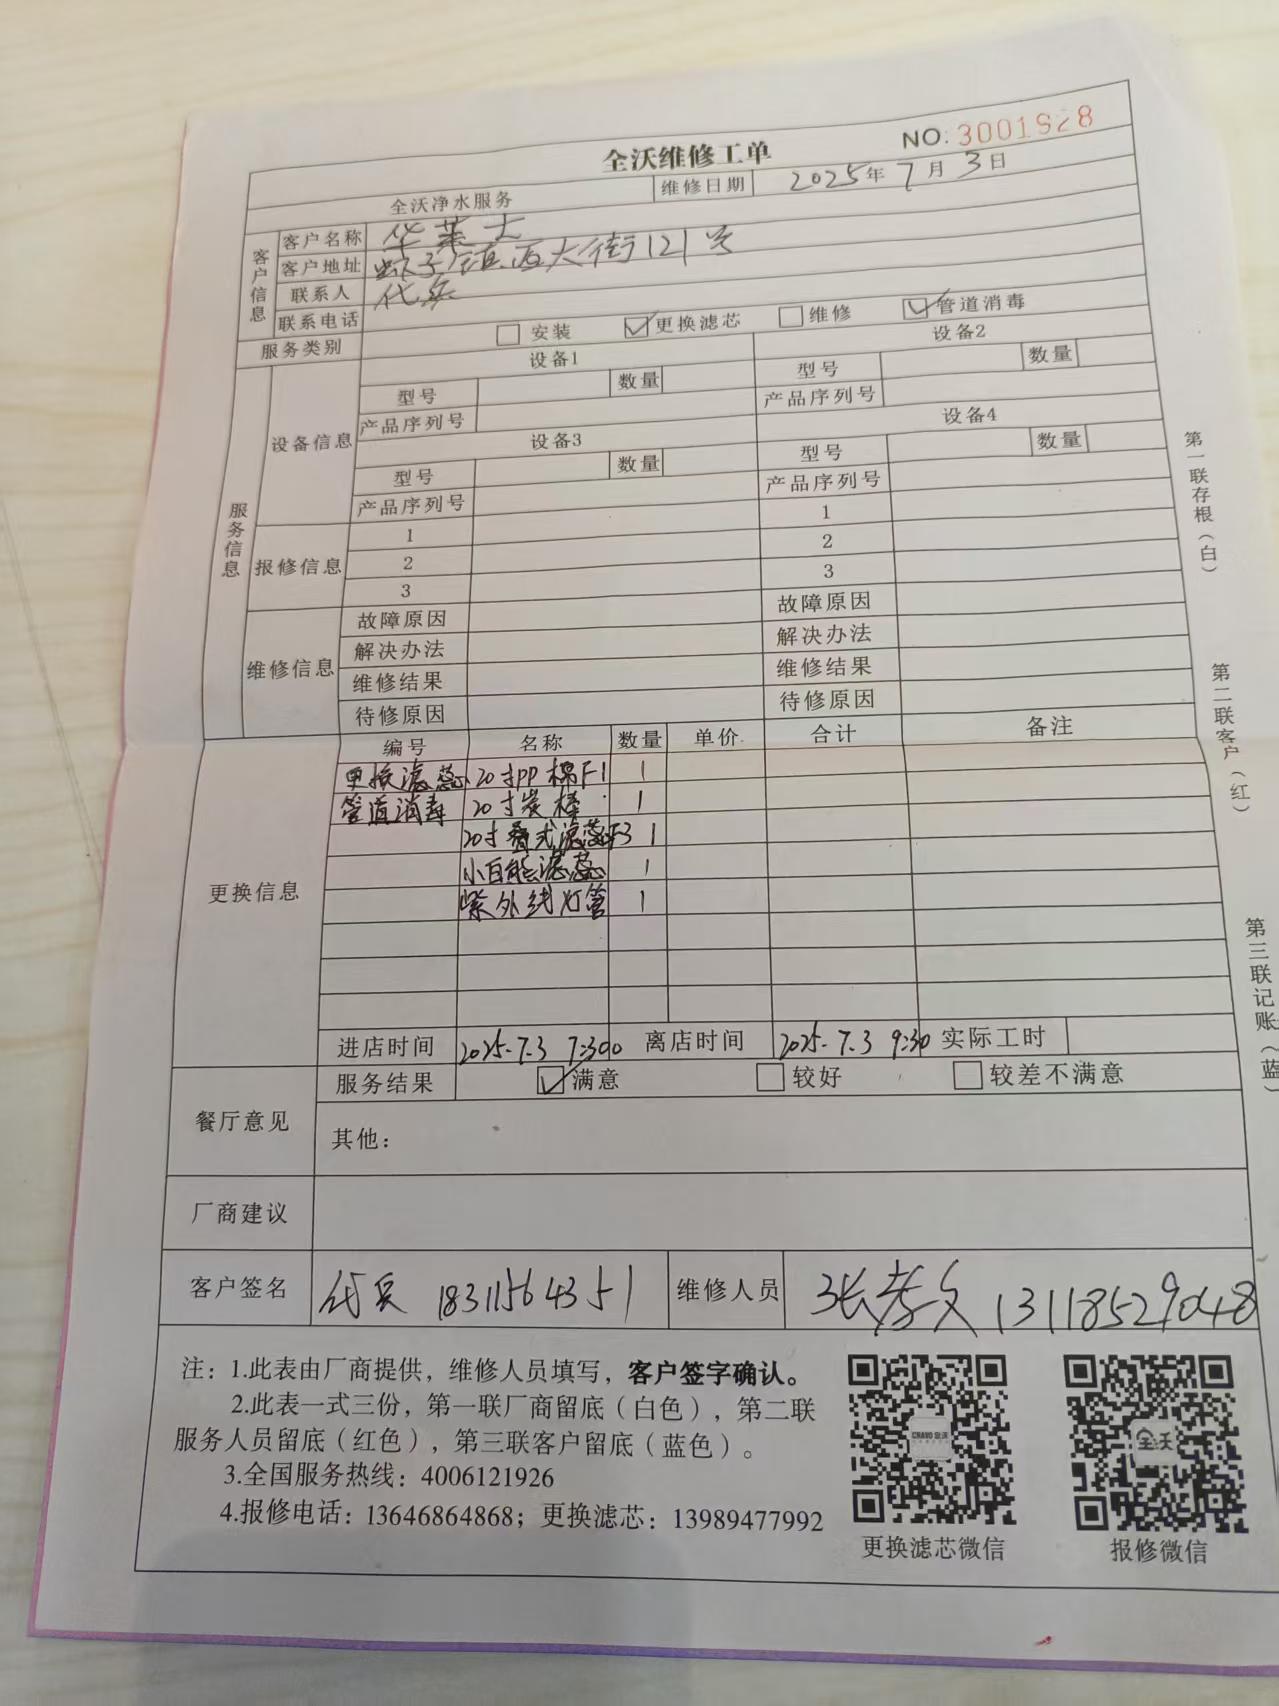 全沃维修工单
NO: 3001928
全沃净水服务 维修日期 2025年7月3日
客户信息
客户名称 华莱士
客户地址 虾子镇西大街121号
联系人 代兵
联系电话
服务类别 安装 更换滤芯 维修 管道消毒
服务信息
设备信息
设备1 设备2
型号 数量 型号 数量
产品序列号 产品序列号
设备3 设备4
型号 数量 型号 数量
产品序列号 产品序列号
报修信息
1 1
2 2
3 3
维修信息
故障原因 故障原因
解决办法 解决办法
维修结果 维修结果
待修原因 待修原因
更换信息
编号 名称 数量 单价 合计 备注
更换滤芯 20寸PP棉F1 1
管道消毒 20寸炭棒 1
20寸叠式滤芯F3 1
小百能滤芯 1
紫外线灯管 1
进店时间 2025.7.3 7:30 离店时间 2025.7.3 9:30 实际工时
餐厅意见
服务结果 满意 较好 较差不满意
其他：
厂商建议
客户签名 代兵 18311564351 维修人员 张孝文 13118529048
注：1.此表由厂商提供，维修人员填写，客户签字确认。
2.此表一式三份，第一联厂商留底（白色），第二联
服务人员留底（红色），第三联客户留底（蓝色）。
3.全国服务热线：4006121926
4.报修电话：13646864868；更换滤芯：13989477992
更换滤芯微信 报修微信
全沃
第一联存根（白）
第二联客户（红）
第三联记账（蓝）